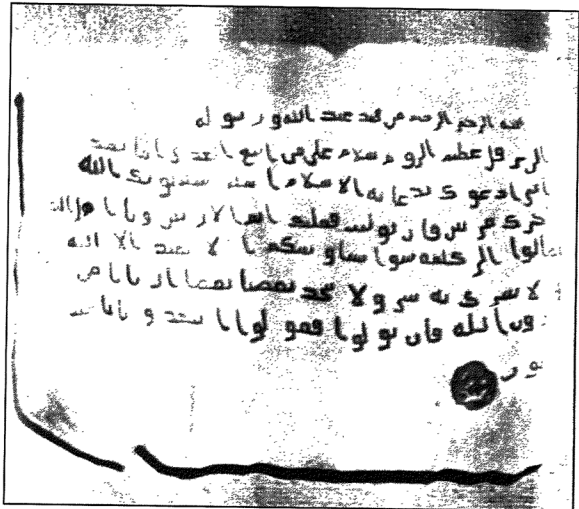 الرحمن الرحيم من محمد عبد الله ورسوله
هرقل عظيم الروم سلام على من اتبع الهدى اما بعد
ادعوك بدعاية الاسلام اسلم تسلم يوتك الله
اجرك مرتين فان توليت فعليك اثم الاريسين ويا اهل
تعالوا الى كلمة سوا بيننا وبينكم الا نعبد الا الله
ولا نشرك به شيا ولا يتخذ بعضنا بعضا اربابا من
دون الله فان تولوا فقولوا اشهدوا بانا